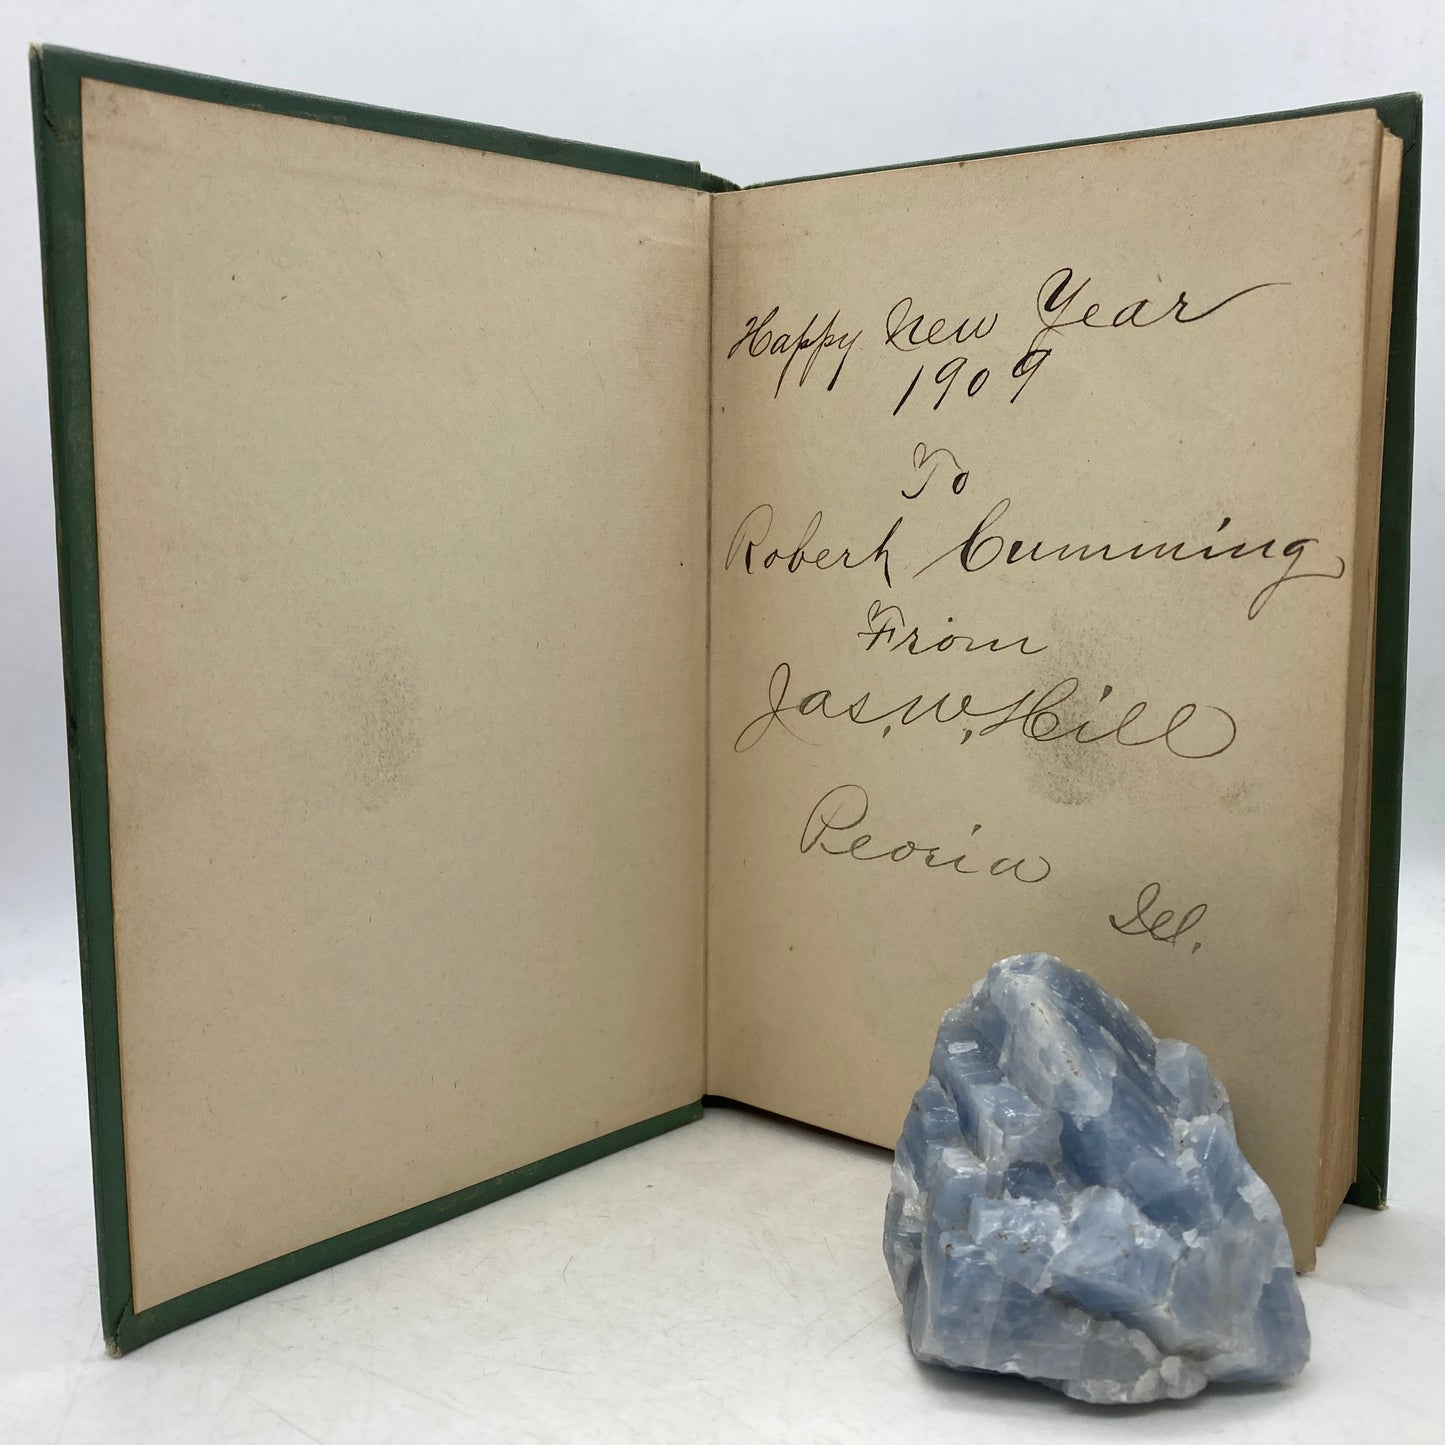 Happy New Year
1909
To
Robert Cumming
From
Jas. W. Hill
Peoria
Ill.